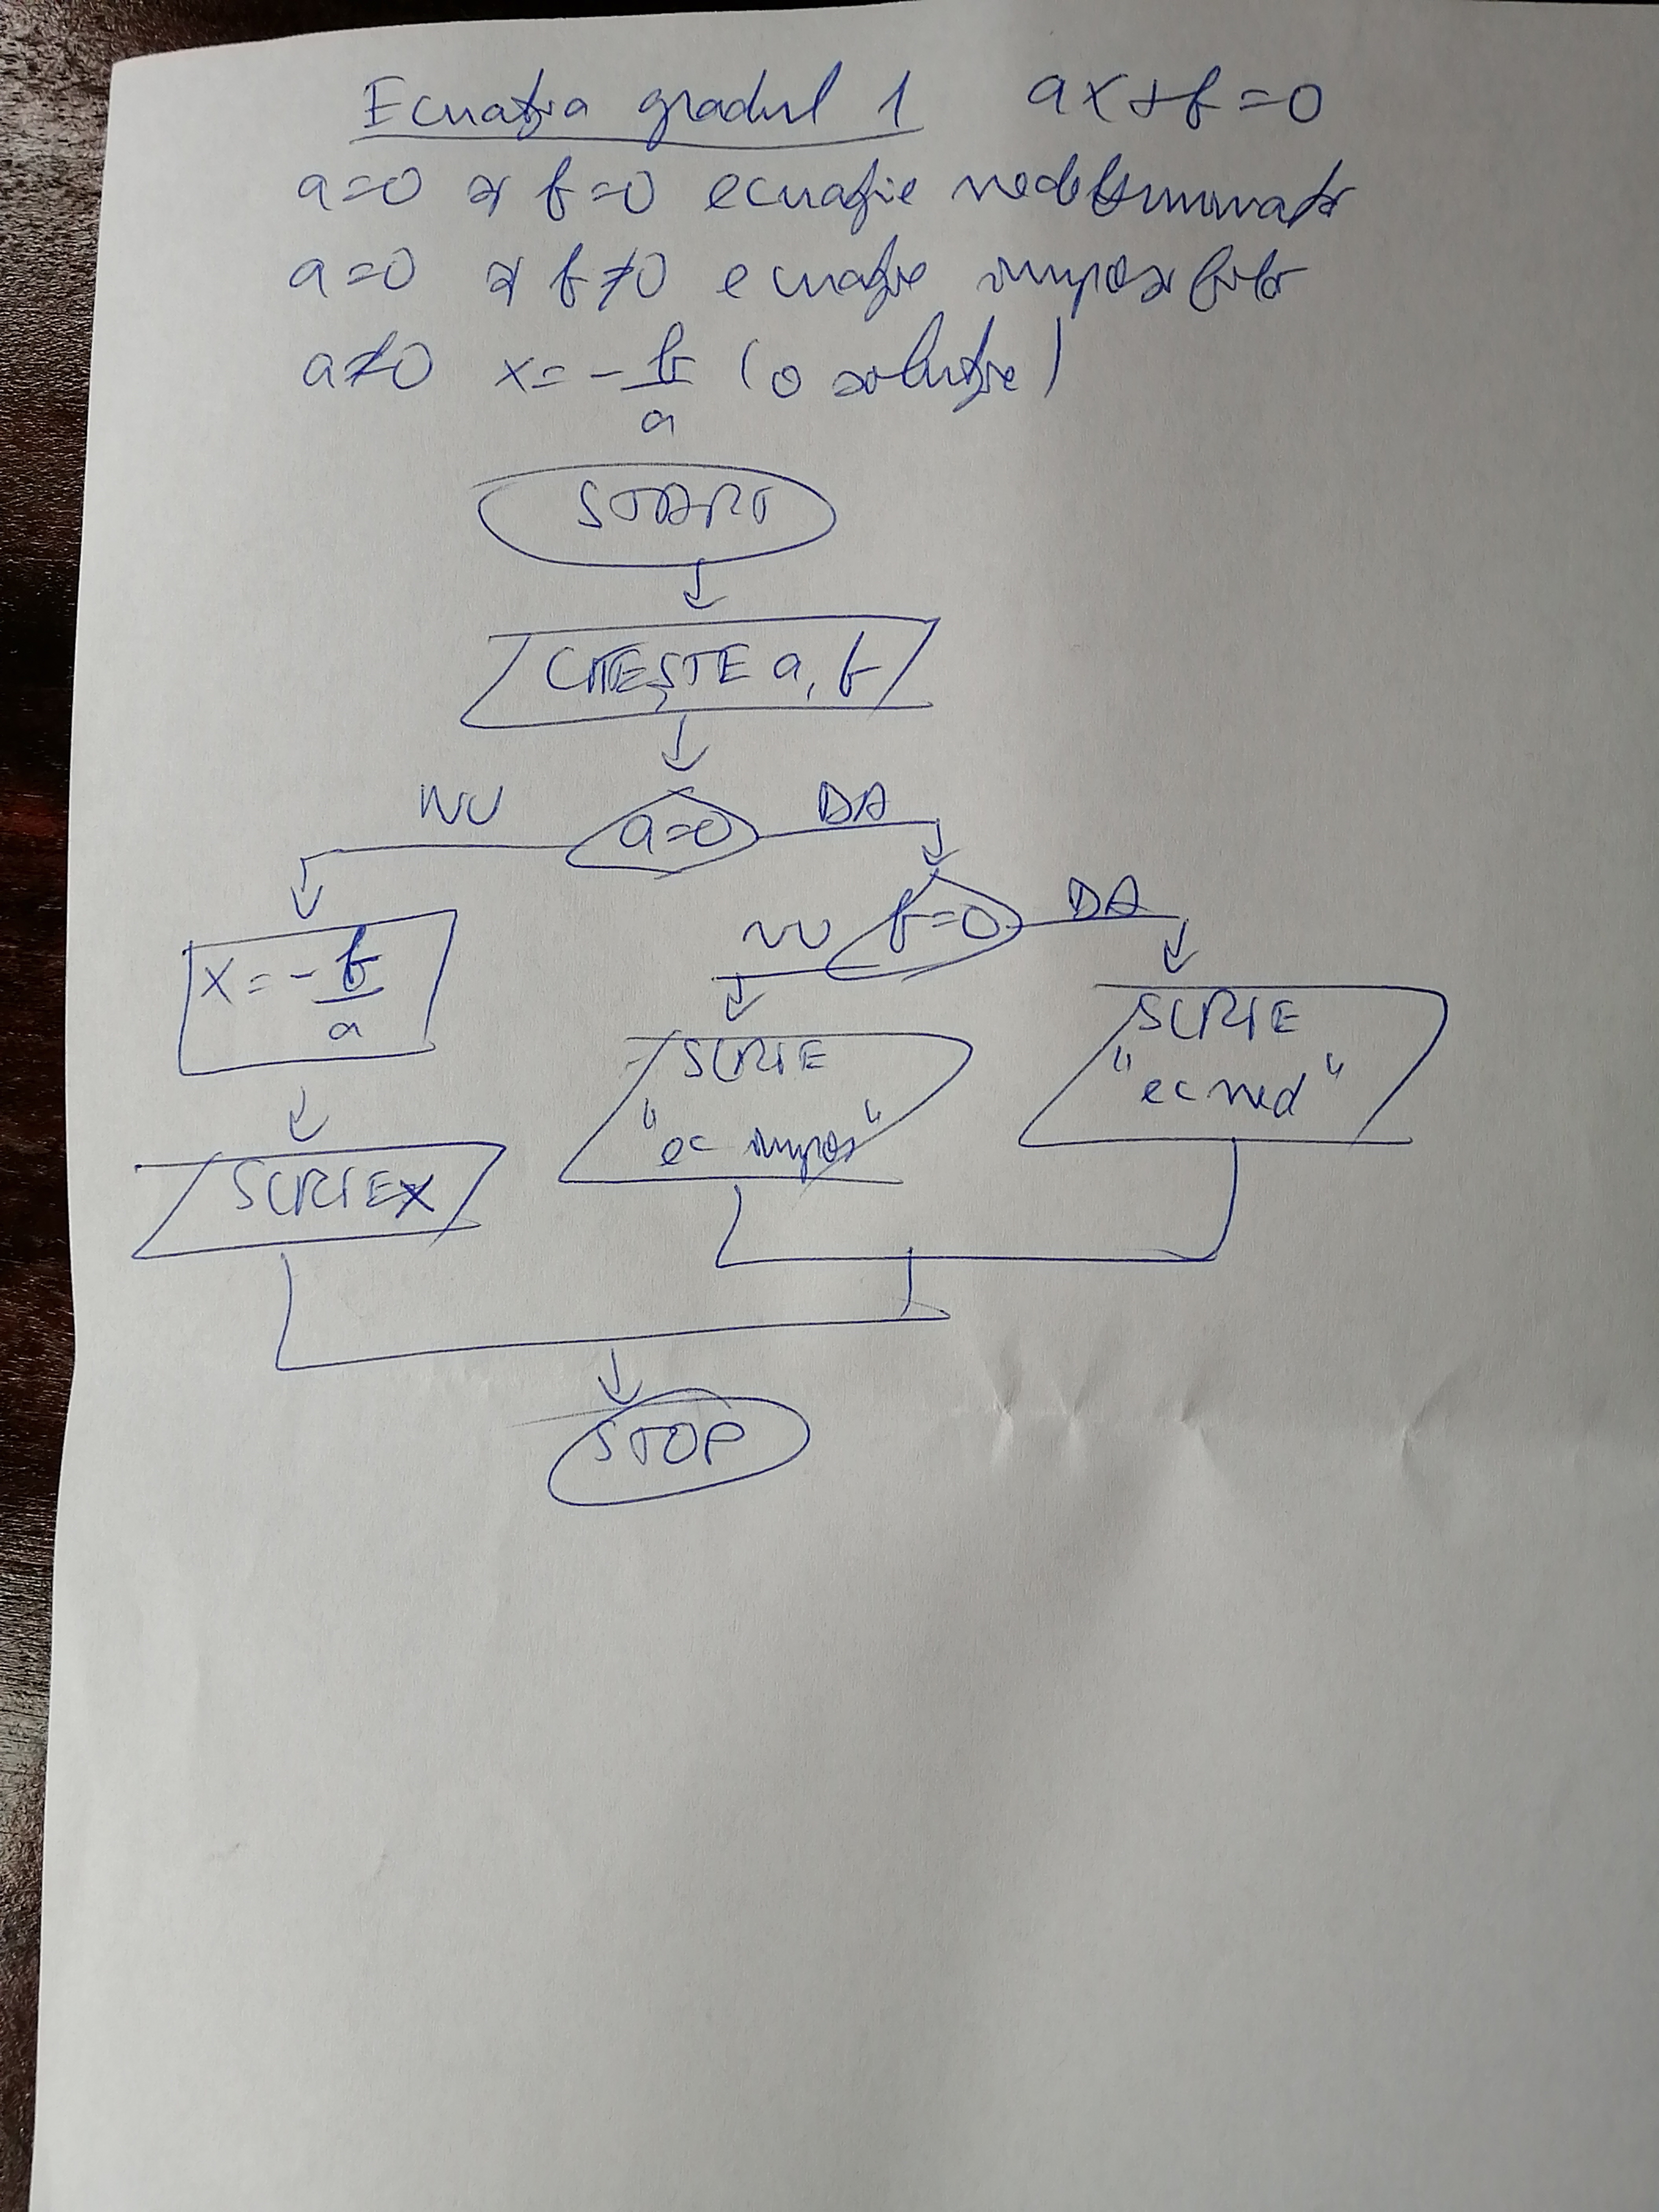 Ecuația gradul 1 ax+b=0
a=0 și b=0 ecuație nedeterminată
a=0 și b≠0 ecuație imposibilă
a≠0 x=-b/a (o soluție)
START
CITEȘTE a, b
NU a=0 DA
NU b=0 DA
x=-b/a
SCRIE
"ec ned"
SCRIE
"ec impos"
SCRIE x
STOP